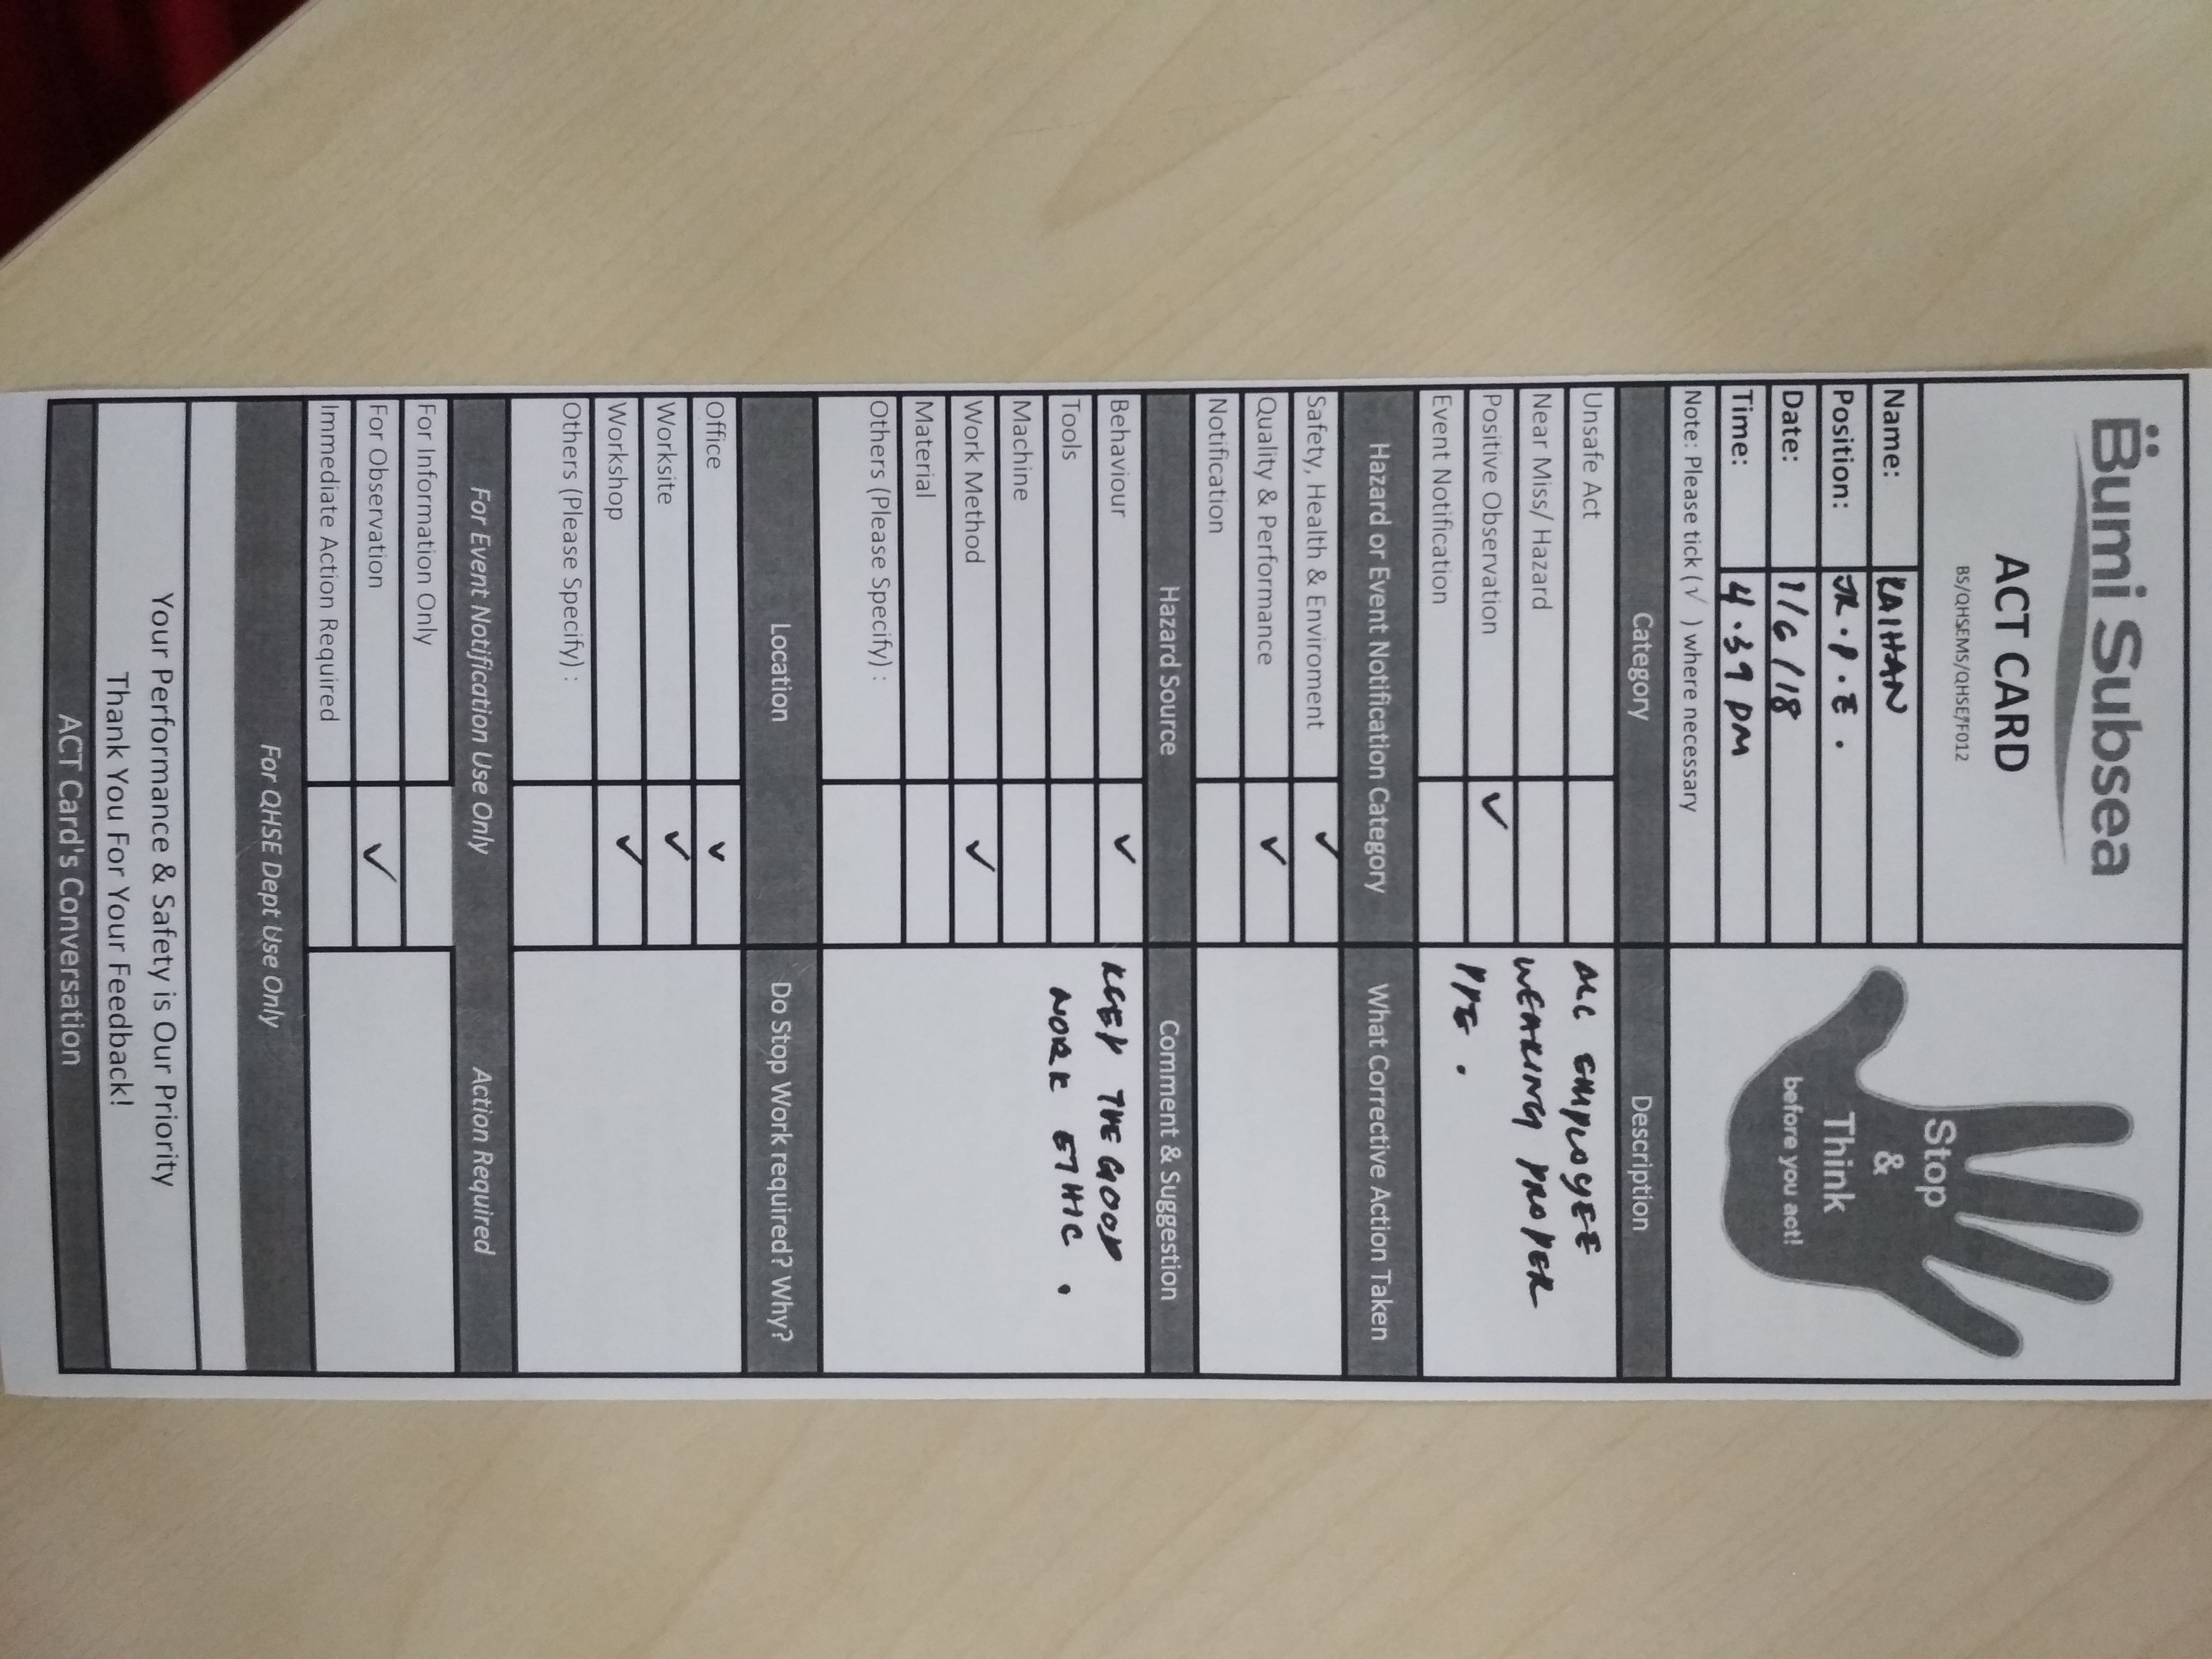 Bumi Subsea
ACT CARD
BS/QHSEMS/QHSE/F012
Stop
&
Think
before you act!
Name: RAIHAN
Position: JR.P.E.
Date: 1/6/18
Time: 4.39 PM
Note: Please tick (√ ) where necessary
Category Description
Unsafe Act
Near Miss/ Hazard
Positive Observation ✓
Event Notification
ALL EMPLOYEE
WEARING PROPER
PPE.
Hazard or Event Notification Category What Corrective Action Taken
Safety, Health & Enviroment ✓
Quality & Performance ✓
Notification
Hazard Source Comment & Suggestion
Behaviour ✓
Tools
Machine
Work Method ✓
Material
Others (Please Specify) :
KEEP THE GOOD
WORK ETHIC.
Location Do Stop Work required? Why?
Office ✓
Worksite ✓
Workshop ✓
Others (Please Specify) :
For Event Notification Use Only Action Required
For Information Only
For Observation ✓
Immediate Action Required
For QHSE Dept Use Only
Your Performance & Safety is Our Priority
Thank You For Your Feedback!
ACT Card's Conversation